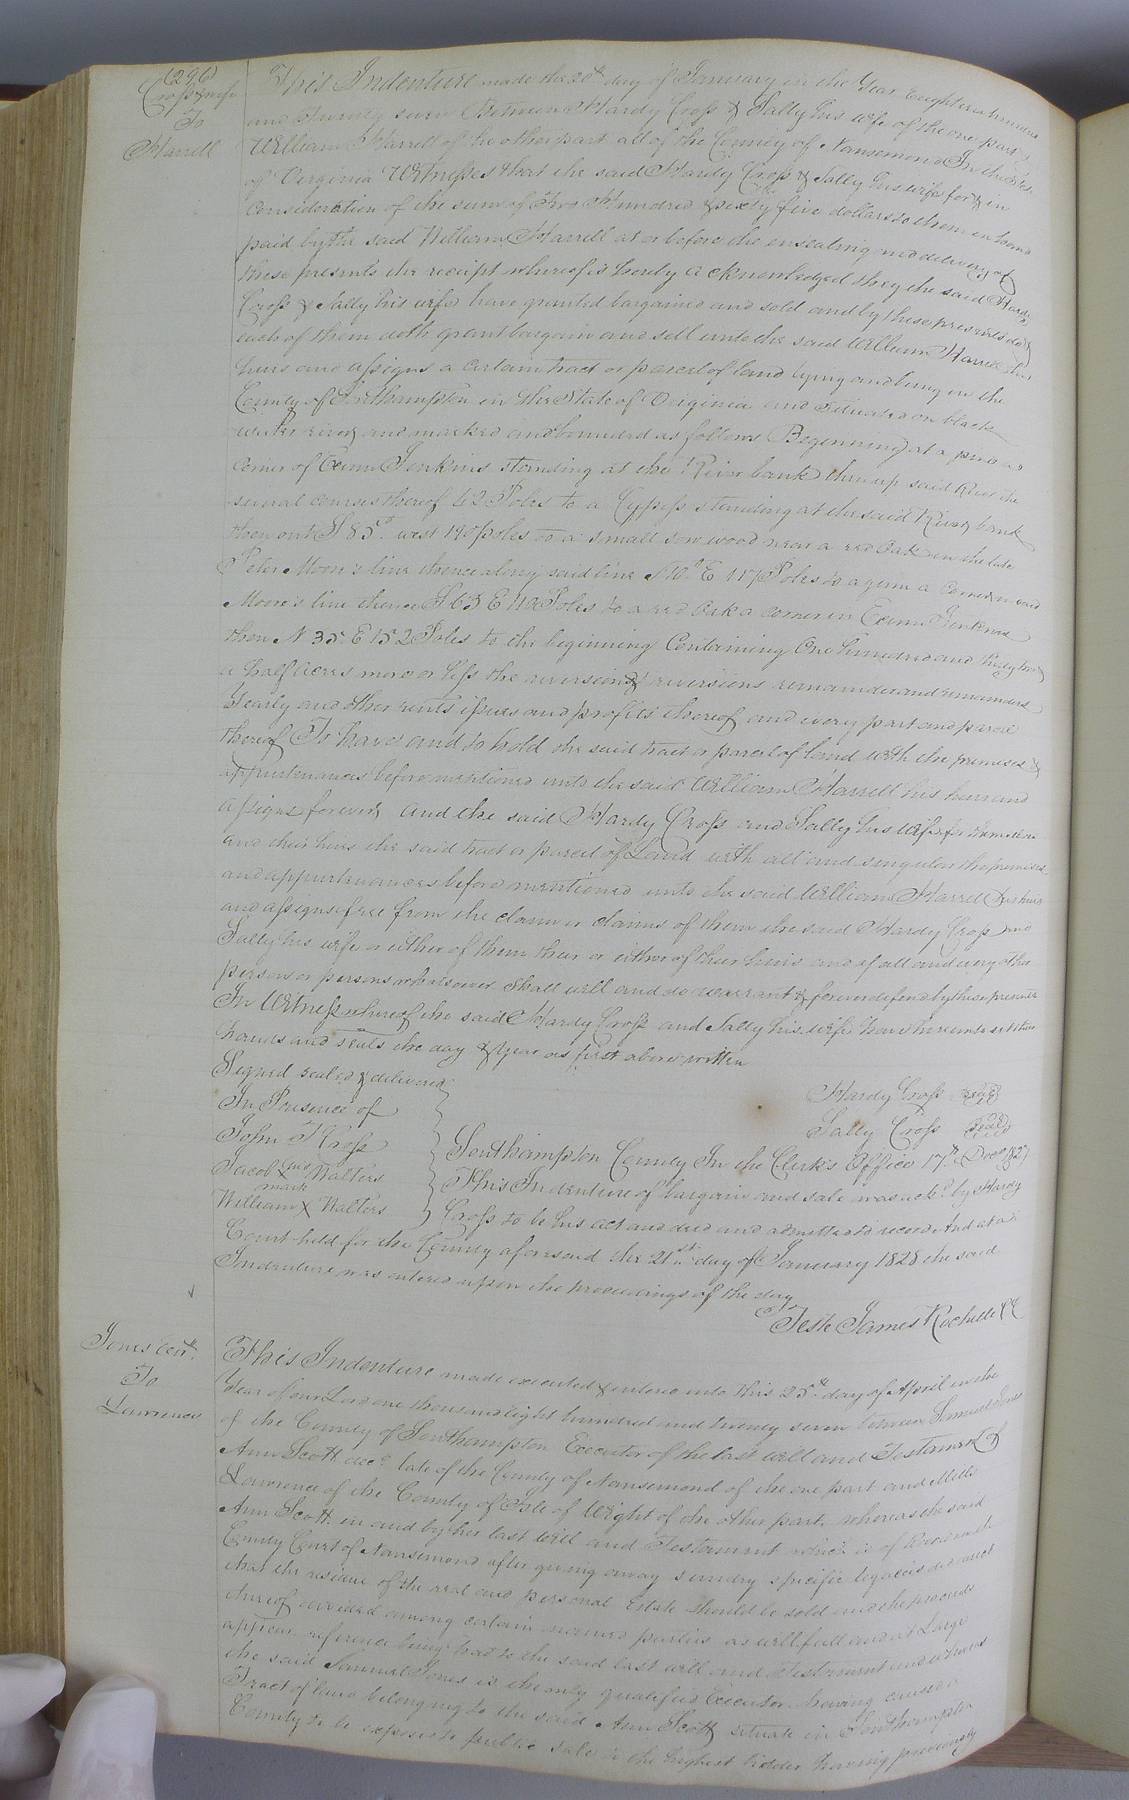 (296)
Cross & wife
To
Harrell
This Indenture made the 20th day of January in the Year Eighteen hundred
and Twenty seven Between Hardy Cross & Sally his wife of the one part &
William Harrell of the other part all of the County of Nansemond In the State
of Virginia Witnesses that the said Hardy Cross & Sally his wife for & in
Consideration of the sum of Two Hundred & sixty five dollars to them in hand
paid by the said William Harrell at or before the ensealing and delivery of
these presents the receipt whereof is hereby acknowledged they the said Hardy
Cross & Sally his wife have granted bargained and sold and by these presents do &
each of them doth grant bargain and sell unto the said William Harrell his
heirs and assigns a certain tract or parcel of land lying and being in the
County of Southampton in the State of Virginia and situated on black
water river and marked and bounded as follows Beginning at a pine a
corner of Exum Jenkins standing at the River bank then up said River the
several courses thereof 62 Poles to a Cypress standing at the said River bank
then out S 85° west 190 poles to a small sow wood near a red Oak in the late
Peter Moore's line thence along said line S 10° E 117 Poles to a gum a Corner in said
Moore's line thence S 63 E 110 Poles to a red Oak a corner in Exum Jenkins
then N 35 E 152 Poles to the beginning Containing One hundred and thirty two &
a half acres more or less the reversion & reversions remainder and remainders
Yearly and other rents issues and profits thereof and every part and parcel
thereof To have and to hold the said tract or parcel of land with the premises &
appurtenances before mentioned unto the said William Harrell his heirs and
assigns forever and the said Hardy Cross and Sally his wife for themselves
and their heirs the said tract or parcel of Land with all and singular the premises
and appurtenances before mentioned unto the said William Harrell & his heirs
and assigns free from the claim or claims of them the said Hardy Cross and
Sally his wife or either of them their or either of their heirs and of all and every other
person or persons whatsoever Shall will and do warrant & forever defend by these presents
In Witness whereof the said Hardy Cross and Sally his wife have hereunto set their
hands and seals the day & year as first above written
Signed sealed & delivered
In Presence of
John T Cross
Jacob his X Walters
mark
William X Walters
Hardy Cross Seal
Sally Cross Seal
Southampton County In the Clerk's Office 17th Decr 1827
This Indenture of bargain and sale was ackd. by Hardy
Cross to be his act and deed and admitted to record And at a
Court held for the County aforesaid the 21st day of January 1828 the said
Indenture was entered upon the proceedings of the day
Teste James Rochelle CC
Jones exr.
To
Lawrence
This Indenture made executed & entered into this 25th day of April in the
Year of our Lord one thousand eight hundred and twenty seven between Samuel Jones
of the County of Southampton Executor of the last will and Testament of
Ann Scott decd. late of the County of Nansemond of the one part and Mills
Lawrence of the County of Isle of Wight of the other part. whereas the said
Ann Scott in and by her last Will and Testament which is of Record in the
County Court of Nansemond after giving away sundry specific legacies did direct
that the residue of the real and personal Estate should be sold and the proceeds
thereof divided among certain named parties as will full and at Large
appear reference being had to the said last will and Testament and whereas
the said Samuel Jones is the only qualified Executor having caused a
Tract of land belonging to the said Ann Scott situate in Southampton
County to be exposed to public sale to the highest bidder having previously